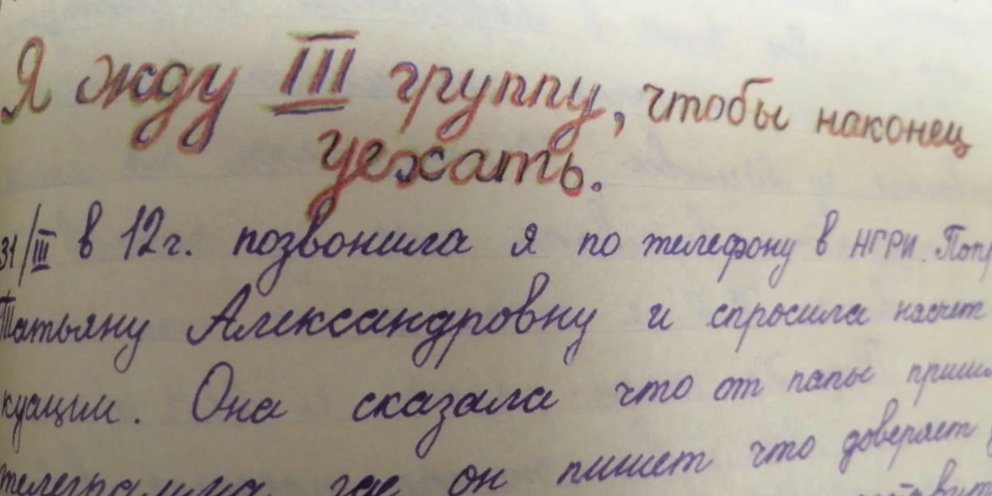 Я жду III группу, чтобы наконец
уехать.
31/III в 12г. позвонила я по телефону в НГРИ. Попр
Татьяну Александровну и спросила насчет
куации. Она сказала что от папы пришл
телеграмма где он пишет что доверяет